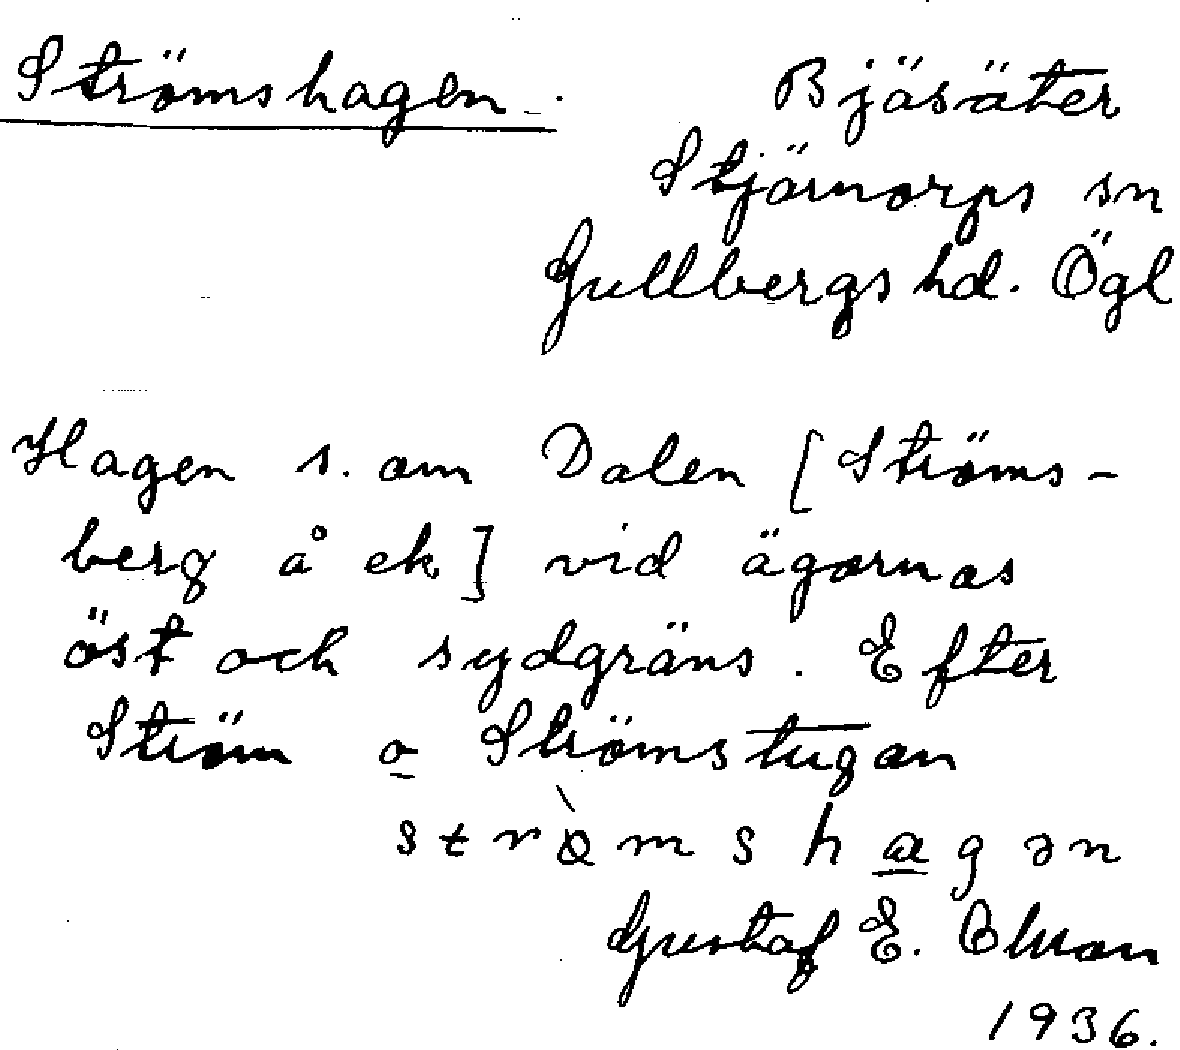 Strömshagen.
Bjäsäter
Stjärnorps sn
Gullbergs hd. Ögl
Hagen s. om Dalen [Ströms-
berg å ek] vid ägornas
öst och sydgräns. Efter
Ström o Strömstugan
strömshagən
Gustaf E.
1936.